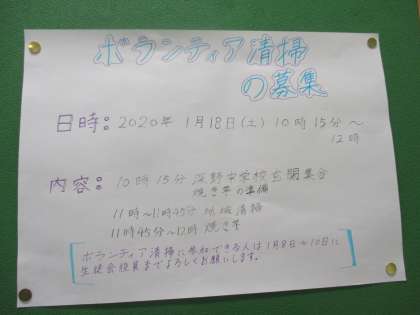 ボランティア清掃
の募集
日時: 2020年 1月18日(土) 10時15分～
12時
内容: 10時15分 深野中学校玄関集合
焼き芋の準備
11時～11時45分 地域清掃
11時45分～12時 焼き芋
ボランティア清掃に参加できる人は1月8日～10日に
生徒会役員までよろしくお願いします。